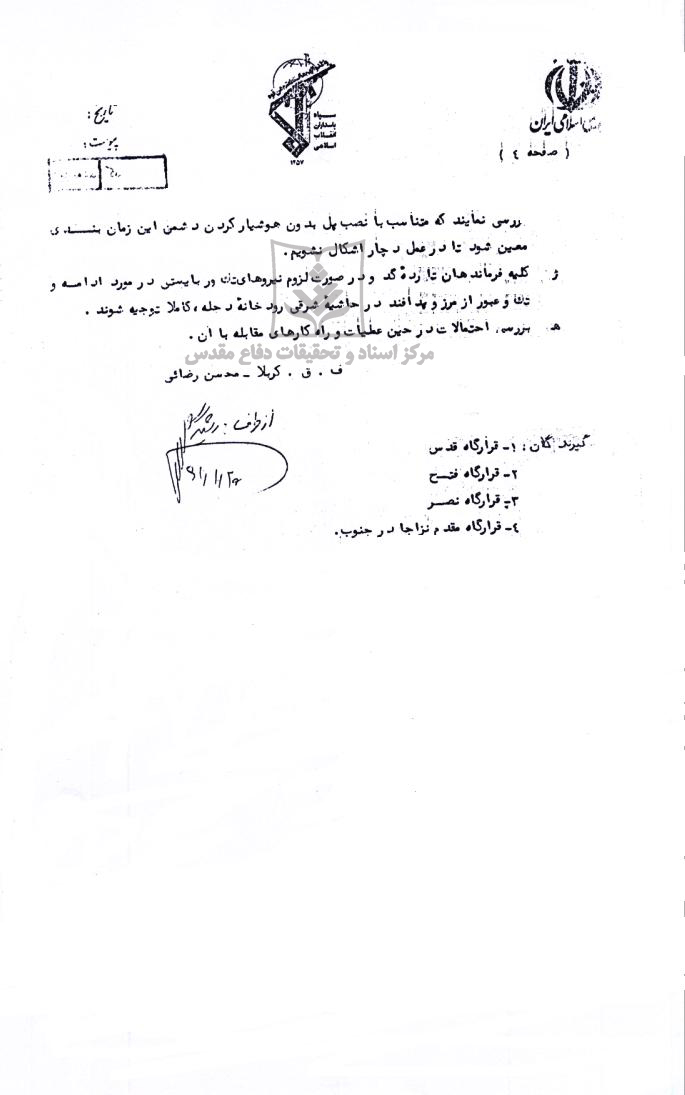 جمهوری اسلامی ایران
سپاه
پاسداران
انقلاب
اسلامی
۱۳۵۷
تاریخ :
پیوست :
( صفحه ٤ )
بررسی نمایند که متناسب با نصب پل بدون هوشیار کردن دشمن این زمان بنـــدی
معین شود تا در عمل دچار اشکال نشویم .
ز کلیه فرماندهان تا رده گد و در صورت لزوم نیروهای تک ور بایستی در مورد ادامــه و
تک و عبور از مرز و پدافند در حاشیه شرقی رودخانه دجله ، کاملا توجیه شوند .
هـ بررسی احتمالات در حین عملیات و راه کارهای مقابله با آن .
مرکز اسناد و تحقیقات دفاع مقدس
ف . ق . کربلا ــ محسن رضائی
از طرف : رشید
۶۱/۱/۲۰
گیرندگان : ۱ــ قرارگاه قدس
۲ــ قرارگاه فتـــح
۳ــ قرارگاه نصـــر
٤ــ قرارگاه مقدم نزاجا در جنوب .